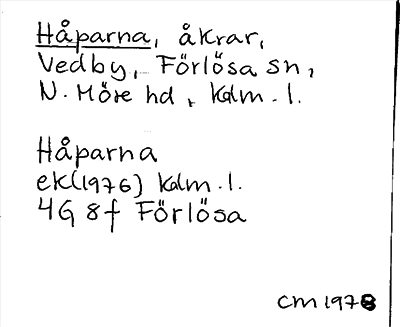 Håparna, åkrar,
Vedby, Förlösa sn,
N. Möre hd, Kalm. l.
Håparna
ek(1976) Kalm. l.
4G 8f Förlösa
CM 1978